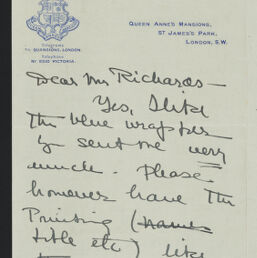 QUEEN ANNE'S MANSIONS,
ST JAMES'S PARK,
LONDON, S.W.
Telegrams
LONDON.
Telephone
VICTORIA.
Dear Mr Richards –
Yes, I like
the blue wrapper
you sent me very
much. Please
however have the
Printing (names
title etc) like